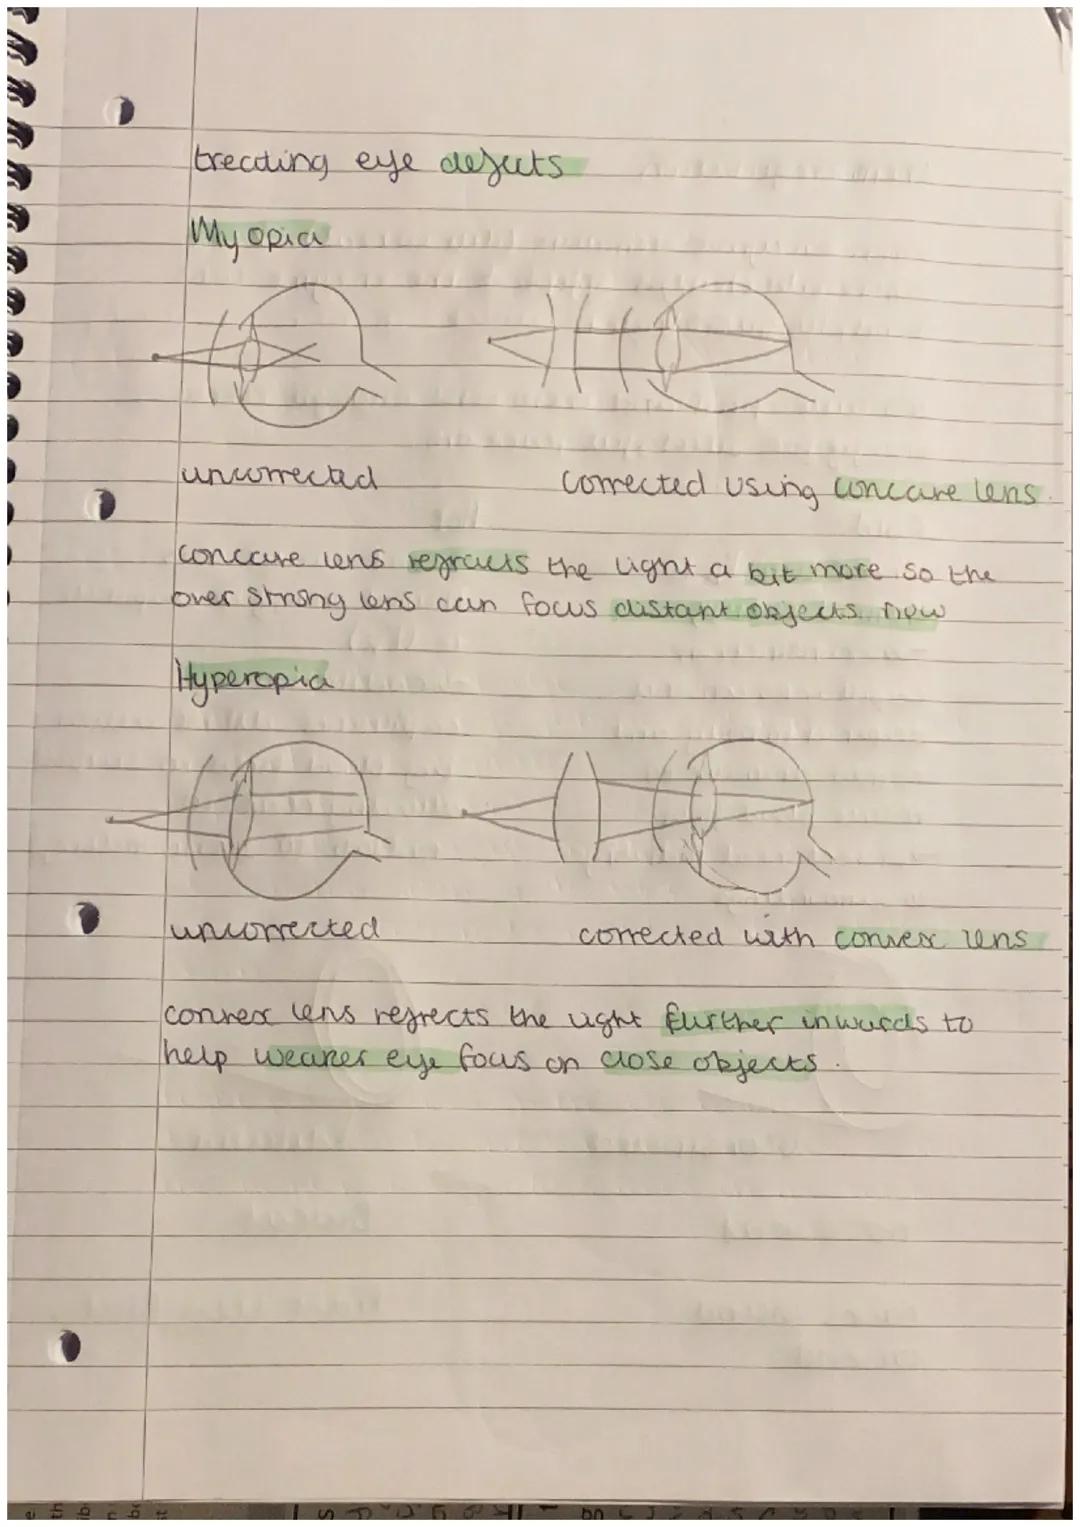 treating eye defects
Myopia
uncorrected
corrected using concave lens.
concave lens refracts the light a bit more so the
over strong lens can focus distant objects now
Hyperopia
uncorrected
corrected with convex lens
convex lens refrects the light further inwards to
help weaker eye focus on close objects.